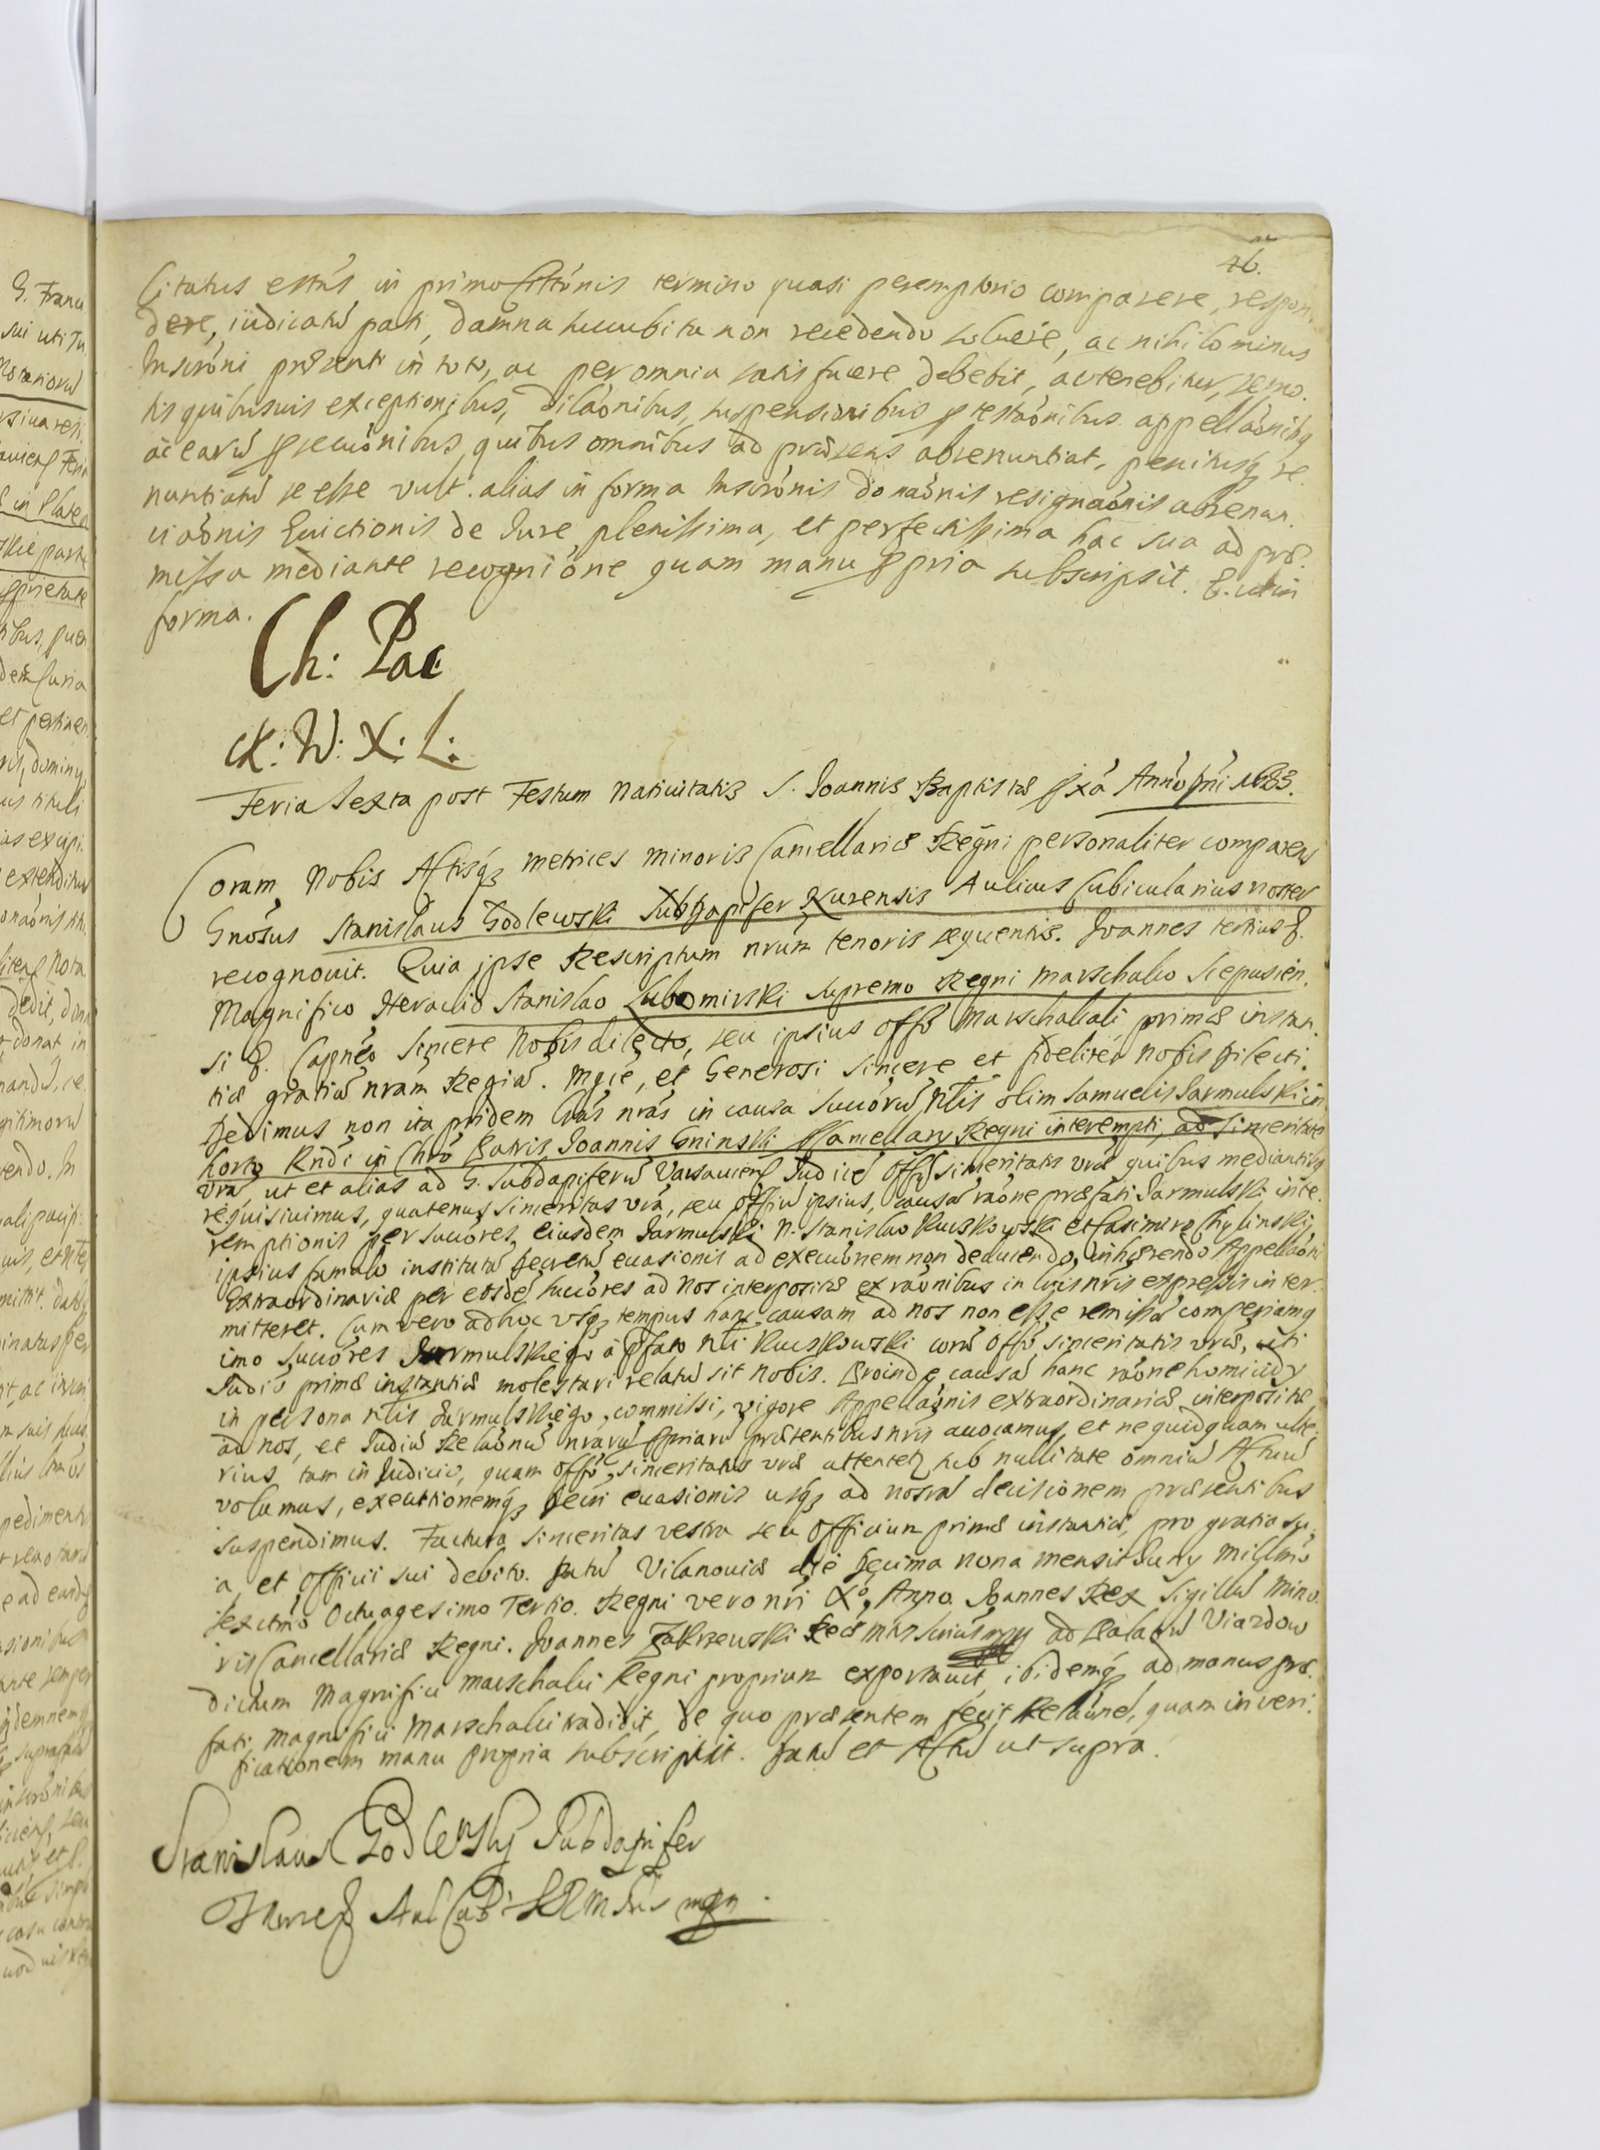 46.
Citatus esttús in primo Cittónis termino quasi peremptorio comparere, respon.
dere, iudicatú pati, damna succubita non recedendo soluere, ac nihilominus
Inscróni præsenti in toto, ac per omnia satisfacere debebit, ac tenebitur, remo.
tis quibusuis exceptionibus, dilaónibus, suspensionibus ptestaónibus appellaónibq
ac earú psecuónibus, quibus omnibus ad præsens abrenuntiat, penitusq re
nuntiatú se esse vult. alias in forma Inscrónis donaónis resignaónis abrenun.
ciaónis Euictionis de Iure plenissima, et perfectissima hac sua ad præ.
missa mediante recognióne quam manu ppria subscripsit. E. uti in
forma.
Ch: Pac
K: W: X: L:
Feria Sexta post Festum Natiuitatis S. Ioannis Baptistæ pxá Anno Dni 1683.
Coram Nobis Actisq3 metrices minoris Cancellariæ Regni personaliter comparens
Gnósus Stanislaus Godlewski Subdapifer Nurensis Aulicus Cubicularius noster
recognouit. Quia ipse Rescriptum nrúm tenoris sequentis. Ioannes tertius E.
Magnifico Heraclio Stanislao Lubomirski supremo Regni Marschalco Scepusien.
si E. Capnéo sincere Nobis dilecto, seu ipsius offó Marschalcali primæ instan.
tiæ gratiá nrám Regiá. Mgcé, et Generosi sincere et fideliter Nobis dilecti.
Dedimus non ita pridem Lrás nrás in causa Succórú Nlis olim Samuelis Jarmulski in
horto Rndi in Chró Patris Ioannis Gninski PCancellary Regni interempti, ad sinceritaté
vrá, ut et alias ad G. Subdapiferú Varsauiens Iudicé Offý sinceritatis vræ quibus mediantibq
requisiuimus, quatenus sinceritas vrá, seu offiú ipsius, causá raóne præfati Jarmulski inte.
remptionis per succóres eiusdem Jarmulski N. Stanislao Kuczkowski et Casimiro Chylinski,
ipsius famulo institutá decretú euasionis ad execuónem non deducendo, inhærendo Appellaóni
Extraordinariæ per eosdé succóres ad Nos interpositæ ex raónibus in lris nris expressis inter
mitteret. Cum vero adhuc vsq3 tempus hanc causam ad nos non esse remissá comperiamq
imo succóres Jarmulskiego á pfato Nli Kuczkowski corá offó sinceritatis vræ, uti
Iudió primæ instantiæ molestari relatú sit nobis. Proinde causá hanc raóne homicidy
in persona Nlis Jarmulskiego, commissi, vigore Appellaónis extraordinariæ interpositæ
ad nos, et Iudiú Relaónú nrarú ppriarú præsentibus nris auocamus, et ne quidquam ulte.
rius, tam in Iudicio, quam offó, sinceritatis vræ attentetq sub nullitate omniú Actuú
volumus, executionemq3 decri euasionis usq3 ad nostrá decisionem præsentibus
suspendimus. Factura sinceritas vestra seu officium primæ instantiæ, pro gratia su,
a, et officii sui debito. Datú Vilanouiæ die decima nona mensis Iuny Millmó
sexctmó Octuagesimo Tertio. Regni vero nri Xº Anno. Ioannes Rex Sigillú Mino.
ris Cancellariæ Regni. Ioannes Zakrzewski Ad Palatiú Viazdow
dictum Magnifici Marschalci Regni proprium exportauit, ibidemq3 ad manus præ.
fati Magnifici Marschalci tradidit, de quo præsentem fecit Relaóné, quam in veri.
ficationem manu propria subscripsit. Datú et Actú ut supra.
Stanislaus Godlewsky Subdapifer
Nurens Aul Cubi mpp